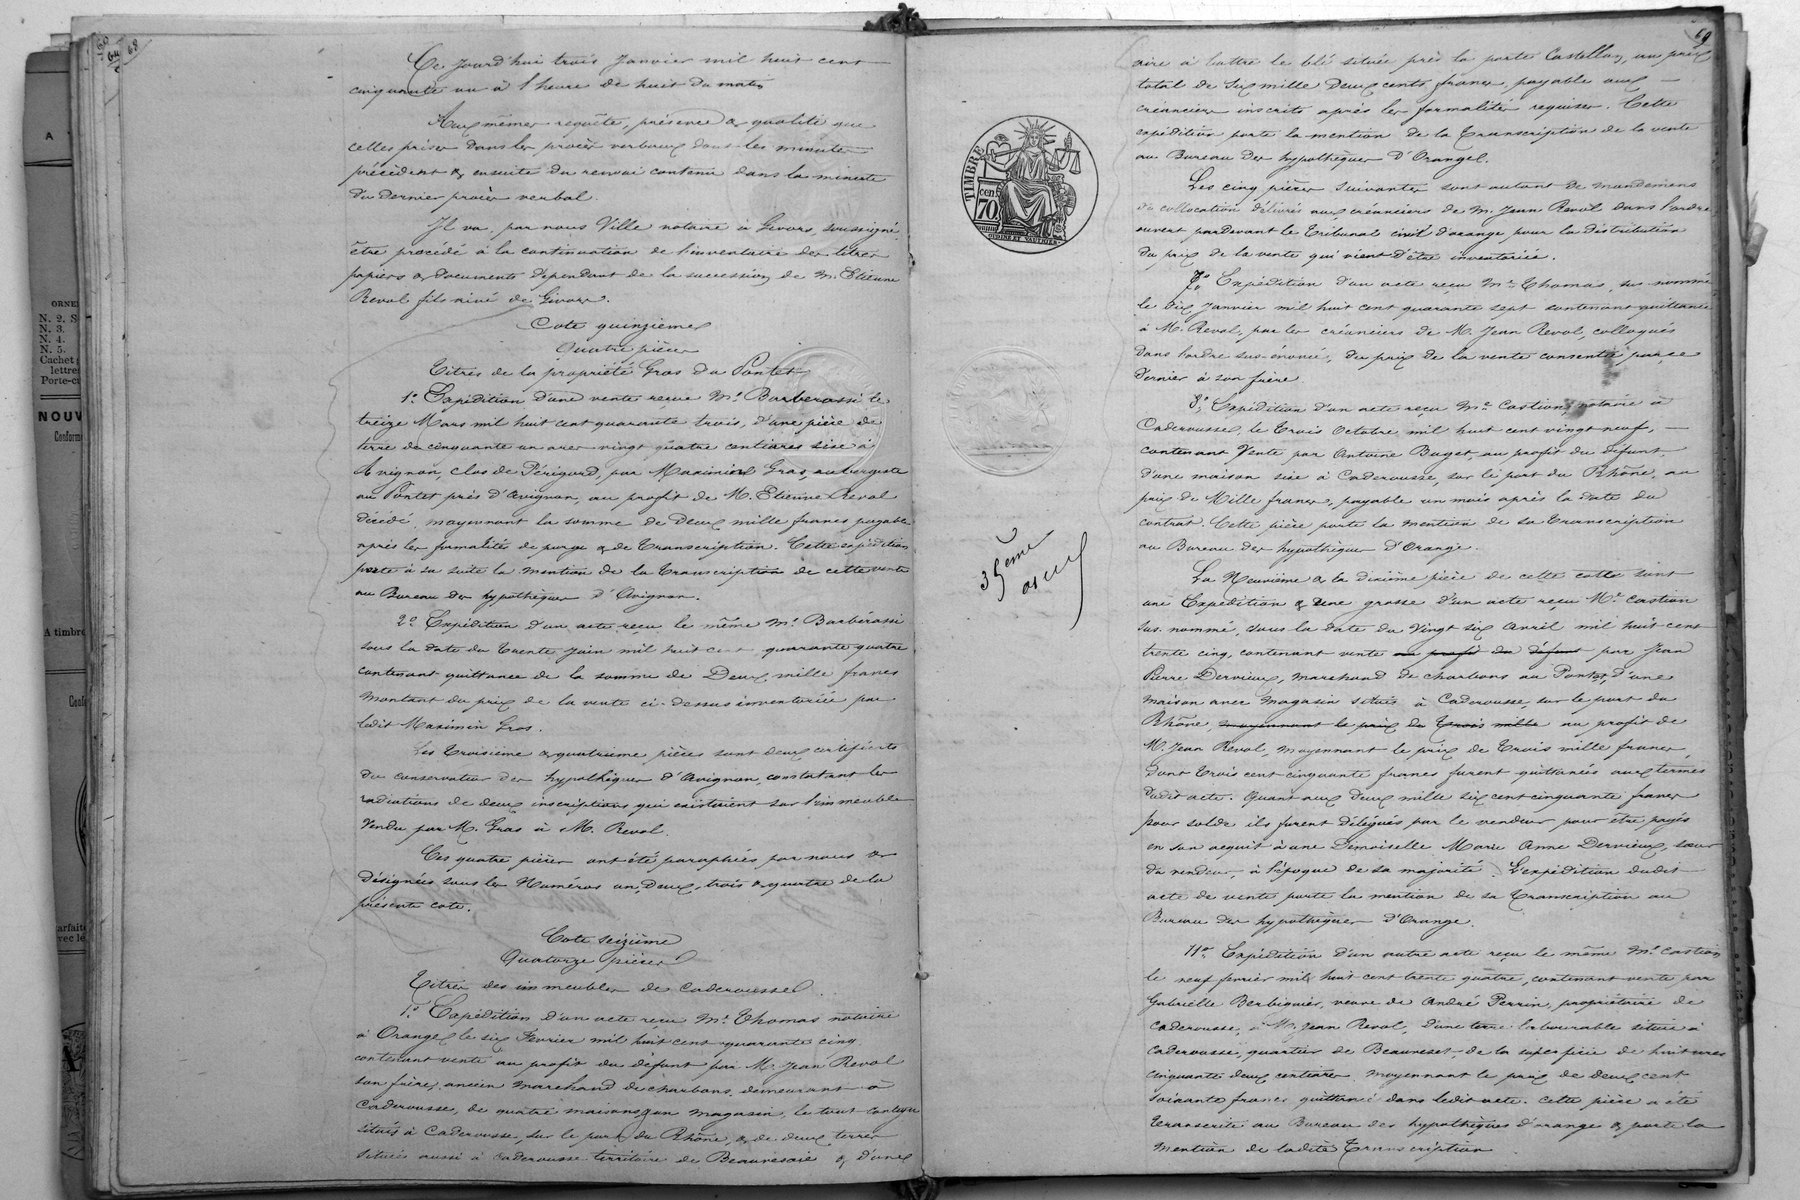 68
Ce jourd'hui trois Janvier mil huit cent
cinquante un à l'heure de huit du matin
Aux mêmes requête, présence & qualité que
celles prises dans les procès verbaux dont les minutes
précèdent & ensuite du renvoi contenu dans la minute
du dernier procès verbal.
Il va, par nous Ville notaire à Givors, soussigné
être procédé à la continuation de l'inventaire des titres
papiers & documents dépendant de la succession de M. Etienne
Revol fils ainé de Givors.
Cote quinzième
Quatre pièces
Titres de la propriété Gras du Pontet
1° Expédition d'une vente reçue Me Barbérassi le
treize Mars mil huit cent quarante trois, d'une pièce de
terre de cinquante un ares vingt quatre centiares sise à
Avignon, clos de Périgord, par Maximin Gras, aubergiste
au Pontet près d'Avignon, au profit de M. Etienne Revol
décédé, moyennant la somme de Deux mille francs payable
après les formalités de purge & de Transcription. Cette expédition
porte à sa suite la mention de la Transcription de cette vente
au Bureau des hypothèques d'Avignon.
2° Expédition d'un acte reçu le même Me Barbérassi
sous la date du trente Juin mil huit cent quarante quatre
contenant quittance de la somme de Deux mille francs
montant du prix de la vente ci-dessus inventoriée par
ledit Maximin Gras.
Les troisième & quatrième pièces sont deux certificats
du conservateur des hypothèques d'Avignon, constatant les
radiations de deux inscriptions qui existaient sur l'immeuble
vendu par M. Gras à M. Revol.
Ces quatre pièces ont été paraphées par nous &
désignées sous les Numéros un, Deux, trois & quatre de la
présente cote.
Cote seizième
Quatorze pièces
Titres des immeubles de Caderousse.
1° Expédition d'un acte reçu Me Thomas notaire
à Orange le six Février mil huit cent quarante cinq
contenant vente au profit du défunt par M. Jean Revol
son frère, ancien marchand de charbons, demeurant à
Caderousse, de quatre maisons & un magasin, le tout contigu
situés à Caderousse, sur le port du Rhône, & de deux terres
situées aussi à Caderousse territoire de & d'une
69
aire à battre le blé située près la porte Castellan, au prix
total de Six mille Deux cents francs payable aux
créanciers inscrits après les formalités requises. Cette
expédition porte la mention de la Transcription de la vente
au Bureau des hypothèques d'Orange.
Les cinq pièces suivantes sont autant de mandemens
de collocation délivrés aux créanciers de M. Jean Revol dans l'ordre
ouvert pardevant le Tribunal civil d'orange pour la distribution
du prix de la vente qui vient d'être inventoriée.
7° Expédition d'un acte reçu Me Thomas, sus-nommé
le dix Janvier mil huit cent quarante sept contenant quittance
à M. Revol, par les créanciers de M. Jean Revol, colloqués
dans l'ordre sus-énoncé, du prix de la vente consentie par ce
dernier à son frère.
8° Expédition d'un acte reçu Me Castion notaire à
Caderousse, le trois Octobre mil huit cent vingt neuf,
contenant Vente par Antoine Buget au profit du défunt
d'une maison sise à Caderousse, sur le port du Rhône, au
prix de Mille francs, payable un mois après la date du
contrat. Cette pièce porte la mention de sa Transcription
au Bureau des hypothèques d'Orange.
La Neuvième & la dixième pièce de cette cotte sont
une Expédition & une grosse d'un acte reçu Me Castion
sus-nommé, sous la date du Vingt six Avril mil huit cent
trente cinq, contenant vente au profit du défunt par Jean
Pierre Dervieux, marchand de charbons au Pontet, d'une
maison avec magasin situés à Caderousse, sur le port du
Rhône, moyennant le prix de trois mille au profit de
M. Jean Revol, moyennant le prix de trois mille francs,
dont trois cent cinquante francs furent quittancés aux termes
dudit acte. Quant aux deux mille six cent cinquante francs
pour solde ils furent délégués par le vendeur pour être payés
en son acquit à une Demoiselle Marie Anne Dervieux, sœur
du vendeur à l'époque de sa majorité. L'expédition dudit
acte de vente porte la mention de sa Transcription au
Bureau des hypothèques d'Orange.
11° Expédition d'un autre acte reçu le même Me Castion
le neuf février mil huit cent trente quatre, contenant vente par
Gabrielle Berbiguier, veuve de André Perrin, propriétaire de
Caderousse, à M. Jean Revol, d'une terre labourable située à
Caderousse, quartier de de la superficie de huit ares
cinquante deux centiares moyennant le prix de deux cent
soixante francs quittancé dans ledit acte. Cette pièce a été
transcrite au Bureau des hypothèques d'orange & porte la
mention de ladite Transcription
TIMBRE
cen
70
35ème